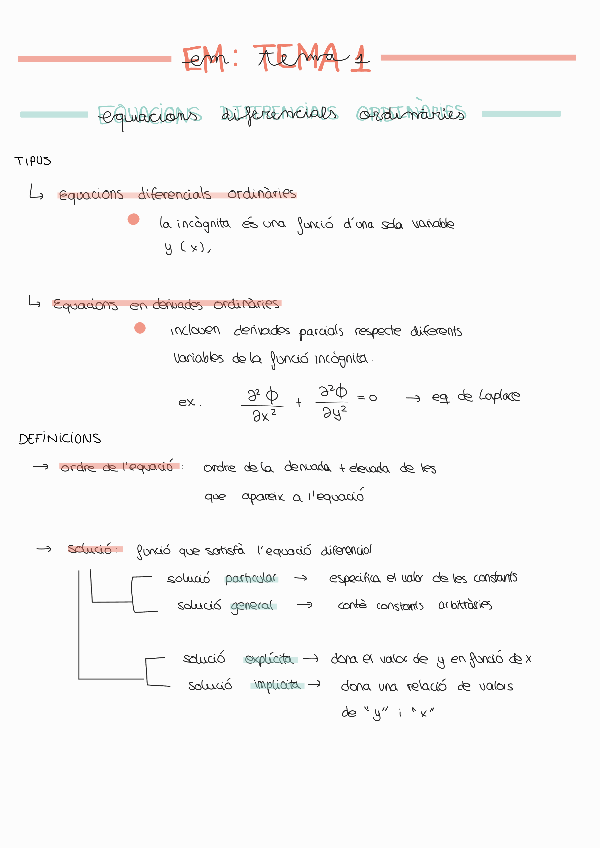 EM: TEMA 1
em tema 1
EQUACIONS DIFERENCIALS ORDINÀRIES
equacions diferencials ordinàries
TIPUS
↳ Equacions diferencials ordinàries
● la incògnita és una funció d'una sola variable
y (x),
↳ Equacions en derivades ordinàries
● inclouen derivades parcials respecte diferents
variables de la funció incògnita.
ex. ∂²Φ/∂x² + ∂²Φ/∂y² = 0 → eq. de Laplace
DEFINICIONS
→ ordre de l'equació: ordre de la derivada + elevada de les
que apareix a l'equació
→ solució: funció que satisfà l'equació diferencial
solució particular → especifica el valor de les constants
solució general → conté constants arbitràries
solució explícita → dona el valor de y en funció de x
solució implícita → dona una relació de valors
de "y" i "x"